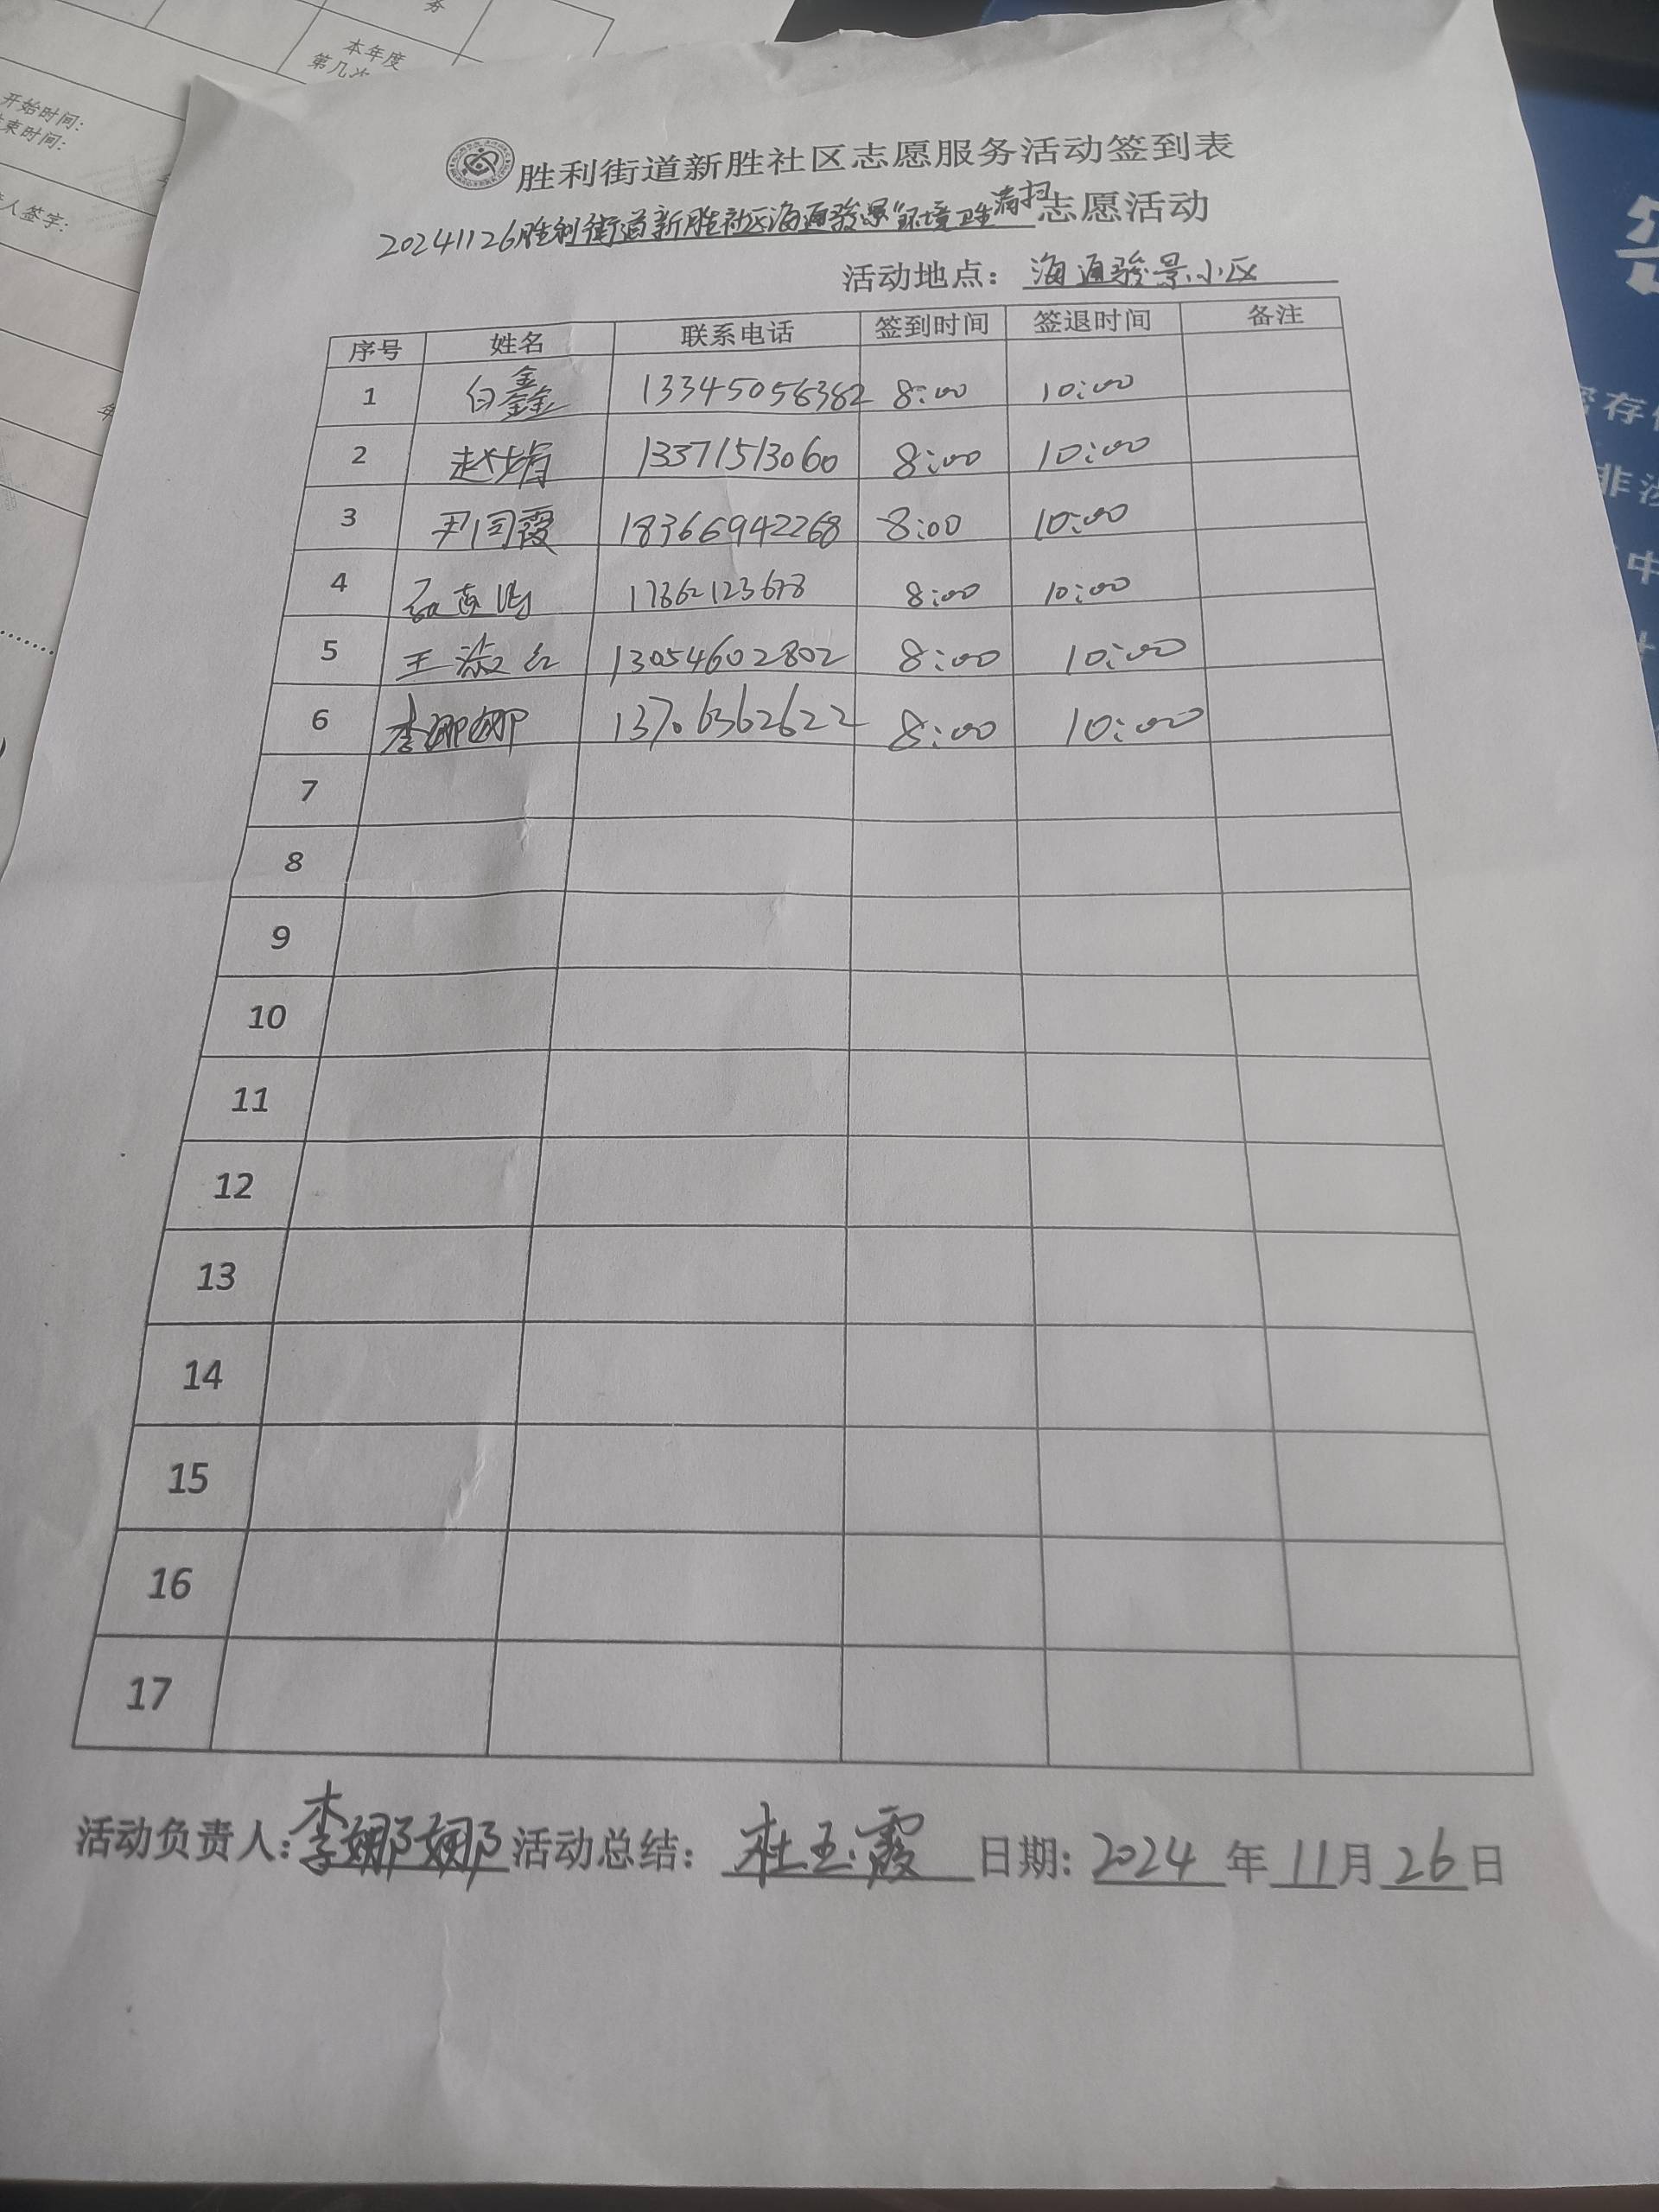 务
本年度
第几次
开始时间:
束时间:
人签字:
胜利街道新胜社区志愿服务活动签到表
20241126胜利街道新胜社区海通骏景"环境卫生清扫志愿活动
活动地点: 海通骏景小区
序号 姓名 联系电话 签到时间 签退时间 备注
1 白鑫 13345056382 8:00 10:00
2 赵娟 13371513060 8:00 10:00
3 尹同霞 18366942268 8:00 10:00
4 17862123678 8:00 10:00
5 王淑红 13054602802 8:00 10:00
6 李娜娜 13706362622 8:00 10:00
7
8
9
10
11
12
13
14
15
16
17
活动负责人:李娜娜 活动总结: 杜玉霞 日期: 2024 年 11 月 26 日
密
存
非
中